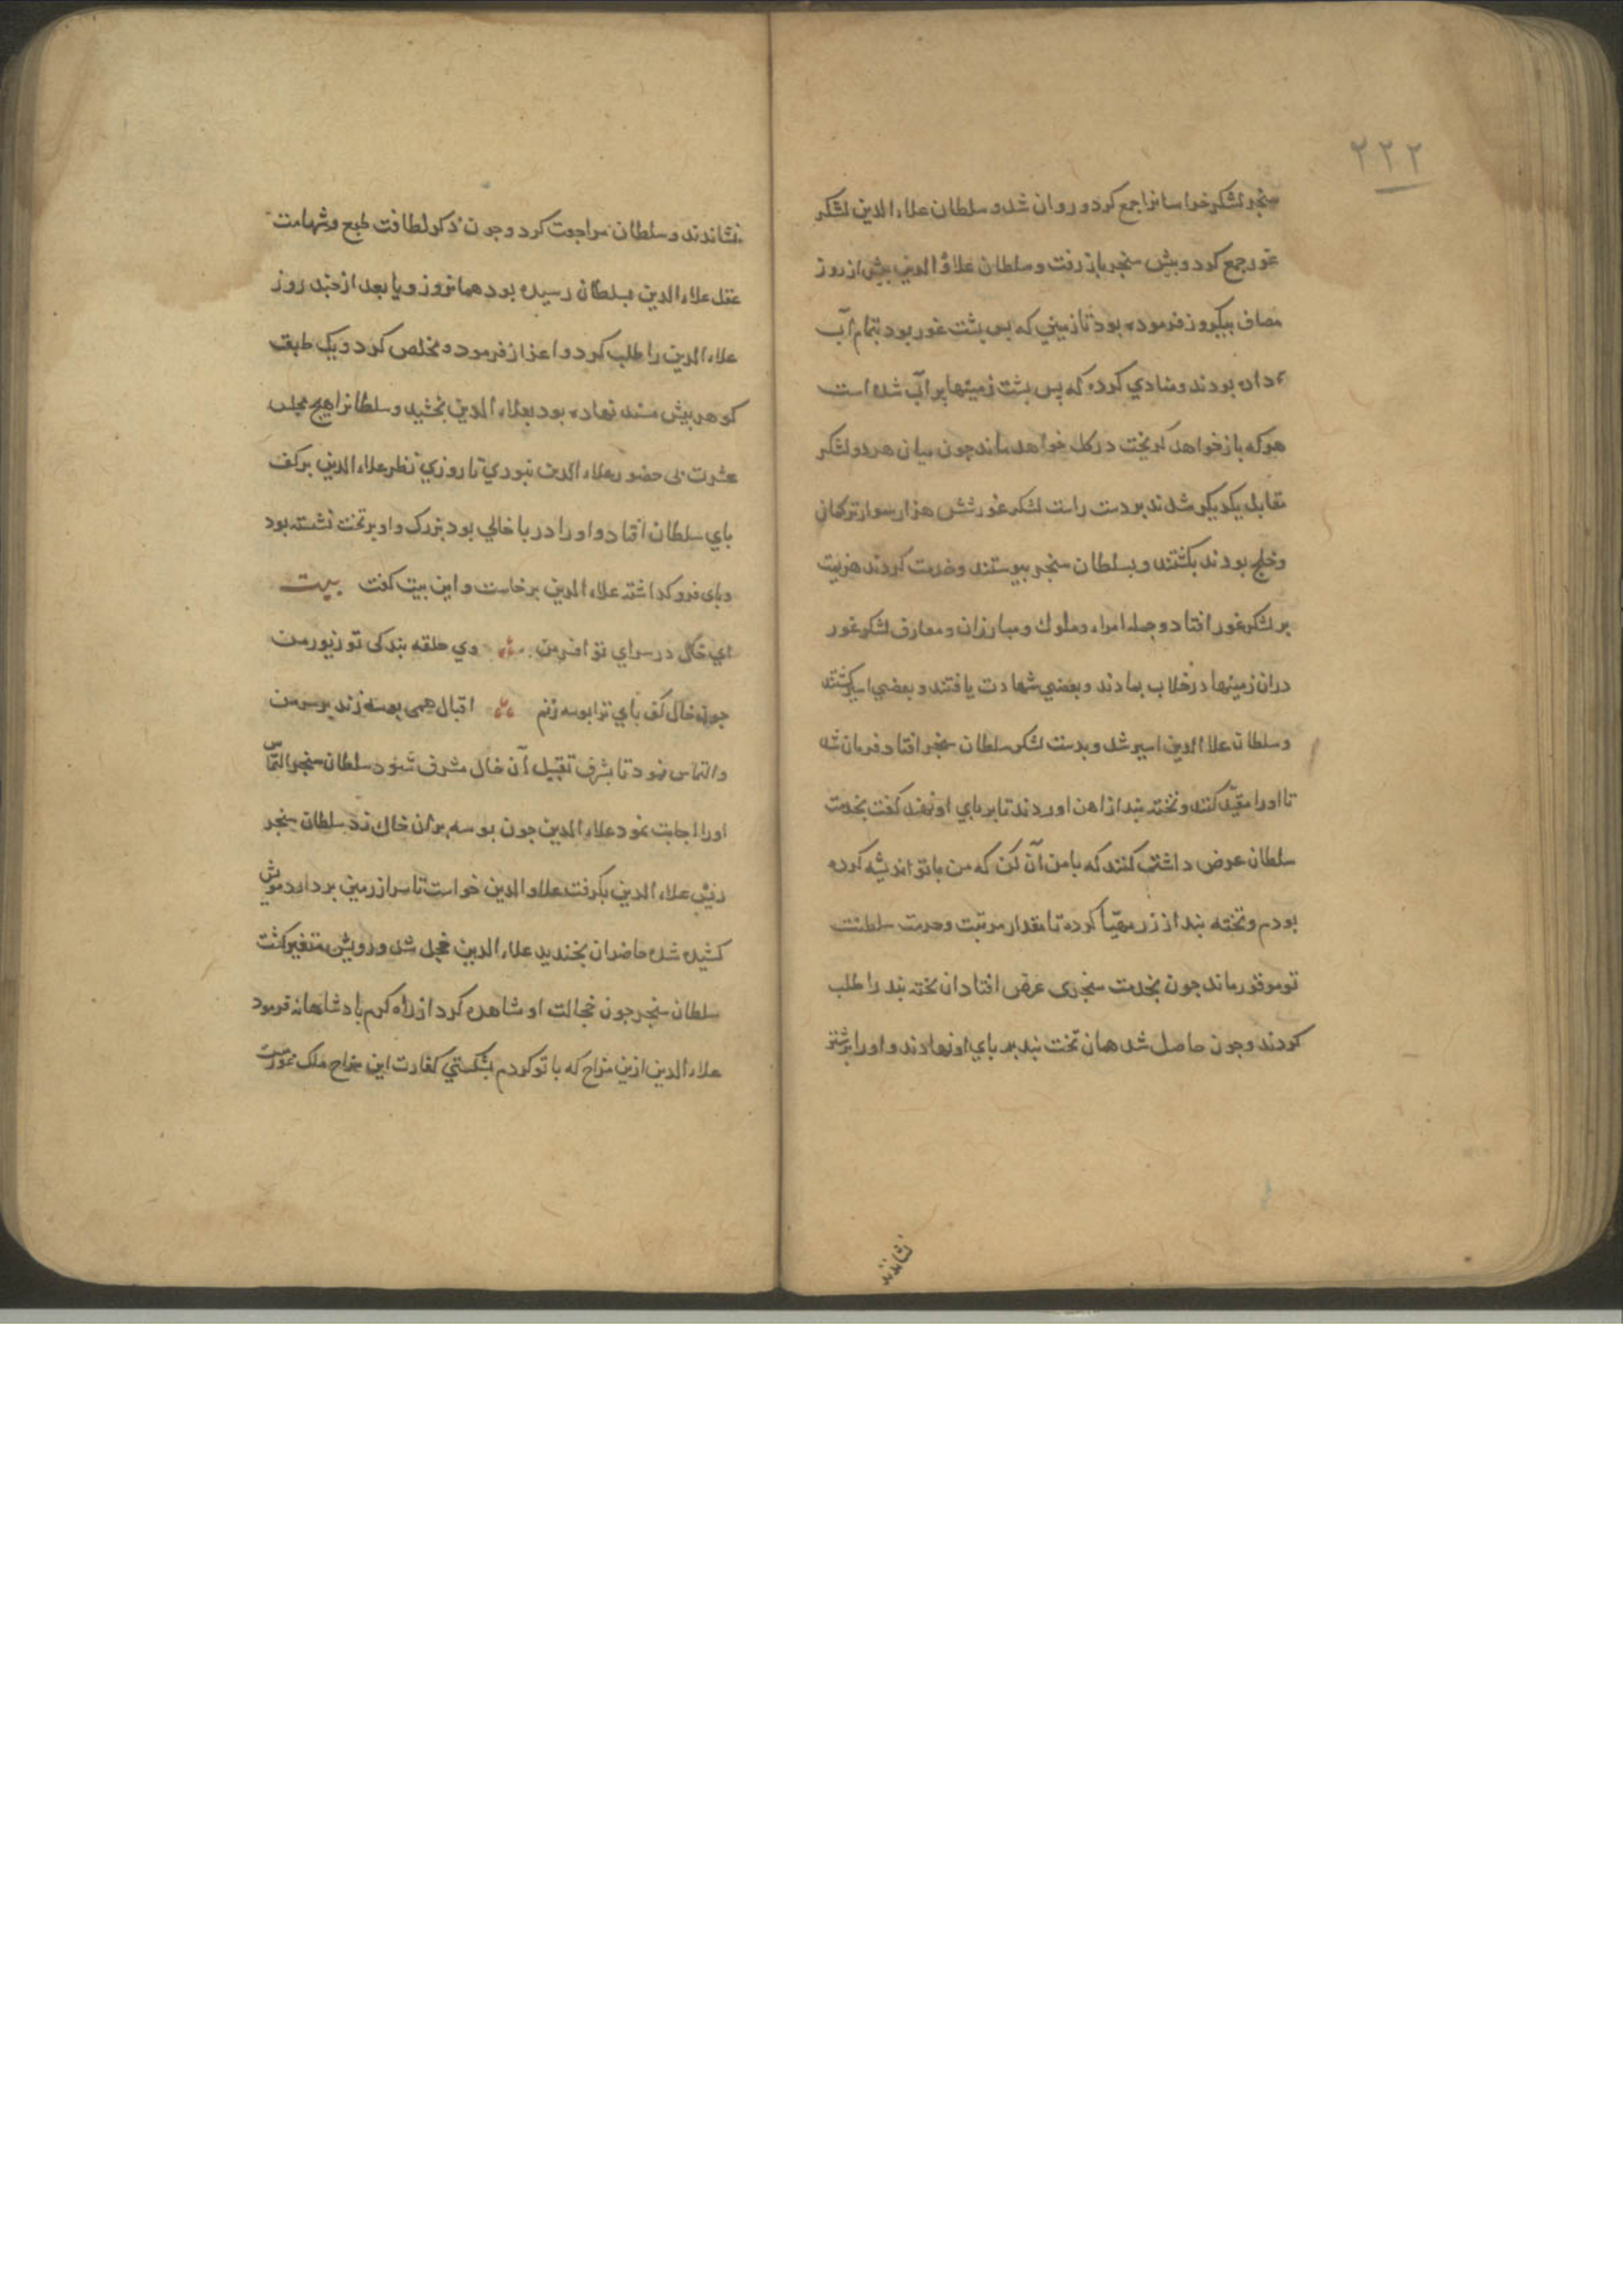 ۲۲۲
سنجر لشکر خراسانرا جمع کرد و روان شد و سلطان علاء الدین لشکر
غور جمع کرد و پیش سنجر باز رفت و سلطان علاؤ الدین پیش از روز
مصاف بیکروز فرموده بود تا زمینی که پس پشت غور بود بتمام آب
داده بودند و منادی کرده که پس پشت زمینها پر آب شده است
هر که باز خواهد کریخت در کل خواهد ماند چون میان هر دو لشکر
تقابل یکدیکر شدند بر دست راست لشکر غور شش هزار سوار ترکمان
و خلج بودند بکشتند و بسلطان سنجر بپیوستند و خدمت کردند هزیمت
بر لشکر غور افتاد و جمله امراء و ملوک و مبارزان و معارف لشکر غور
دران زمینها در خلاب بماندند و بعضی شهادت یافتند و بعضی اسیر کشتند
و سلطان علاء الدین اسیر شد و بدست لشکر سلطان سنجر افتاد فرمان شد
تا اورا مقیّد کنند و تخته بند از اهن اوردند تا بر پای او نهند کفت بخدمت
سلطان عرض داشت کنند که با من آن کن که من با تو اندیشه کرده
بودم و تخته بند از زر مهیّا کرده تا مقدار مرتبت و حرمت سلطنت
تو موقور ماند جون بخدمت سنجری عرض افتاد ان تخته بند را طلب
کردند و جون حاصل شد همان تخت بند بر پای او نهادند و اورا بر شتر
نشاندند
نشاندند و سلطان مراجعت کرد و جون ذکر لطافت طبع و شهامت
عقل علاء الدین بسلطان رسیده بود همانروز و یا بعد از چند روز
علاء الدین را طلب کرد و اعزاز فرمود و مخلص کرد و یک طبق
کوهر پیش مسند نهاده بود بعلاء الدین بخشید و سلطانرا هیچ مجلس
عشرت بی حضور علاء الدین نبودی تا روزی نظر علاء الدین بر کف
پای سلطان افتاد و اورا در پا خالی بود بزرک و او بر تخت نشسته بود
و پای فرو کذاشته علاء الدین برخاست و این بیت کفت بیت
ای خاک در سرای تو افسر من وی حلقه بندکی تو زیور من
چون خال کف پای ترا بوسه زنم اقبال همی بوسه زند بر سر من
و التماس نمود تا بشرف تقبیل آن خال مشرف شود سلطان سنجر التماس
اورا اجابت نمود علاء الدین جون بوسه بران خاک زد سلطان سنجر
ریش علاء الدین بکرفت علاو الدین خواست تا سر از زمین بردارد مویش
کشیده شد حاضران بخندید علاء الدین خجل شد و رویش متغیر کشت
سلطان سنجر جون خجالت او مشاهده کرد از راه کرم پادشاهانه فرمود
علاء الدین ازین مزاح که با تو کردم بشکستی کفارت این مزاح ملک غور